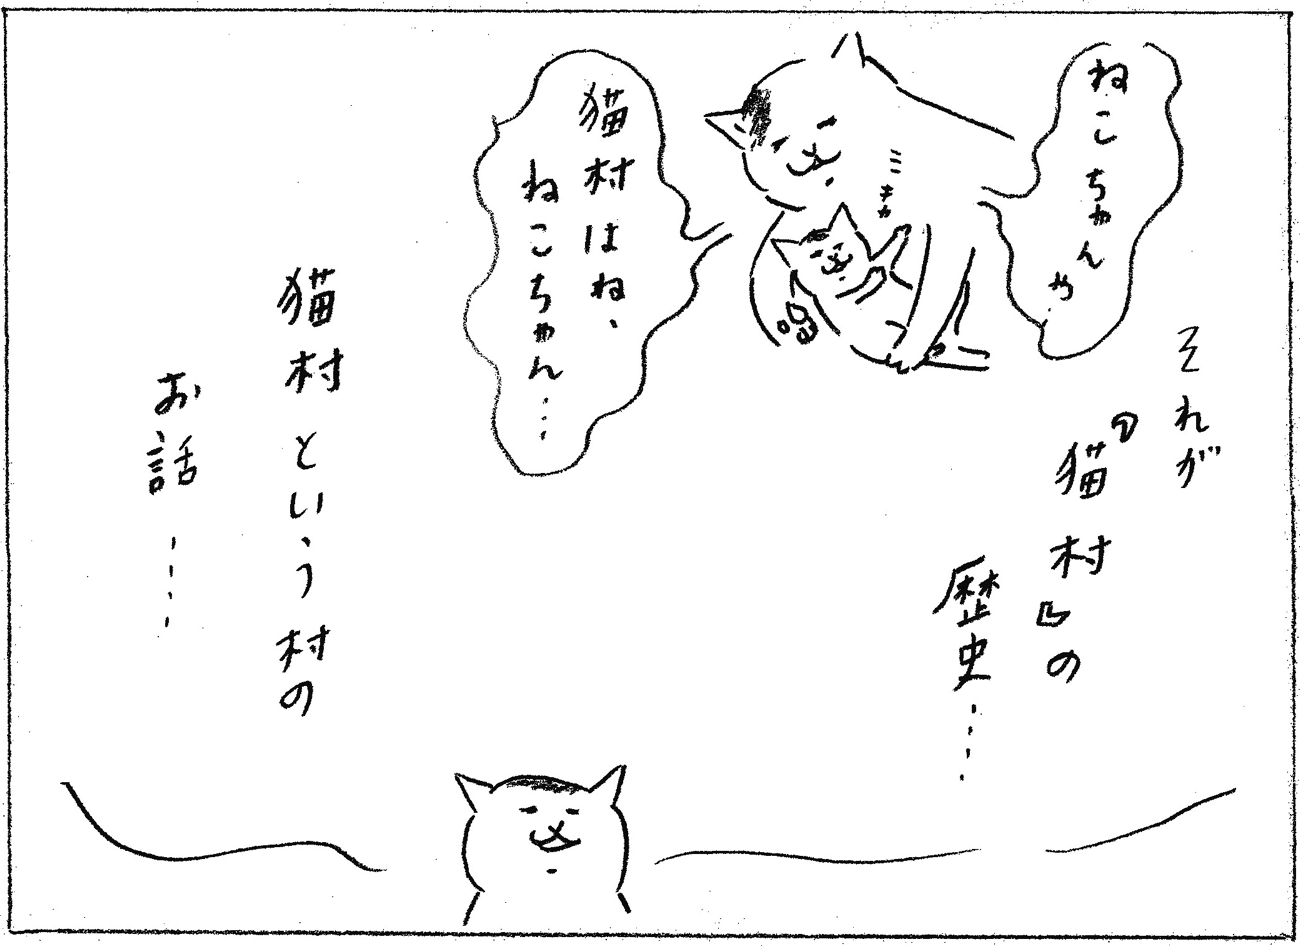 ねこちゃんや
ミャオ
猫村はね、
ねこちゃん…
それが
『猫村』の
歴史…
猫村という村の
お話…